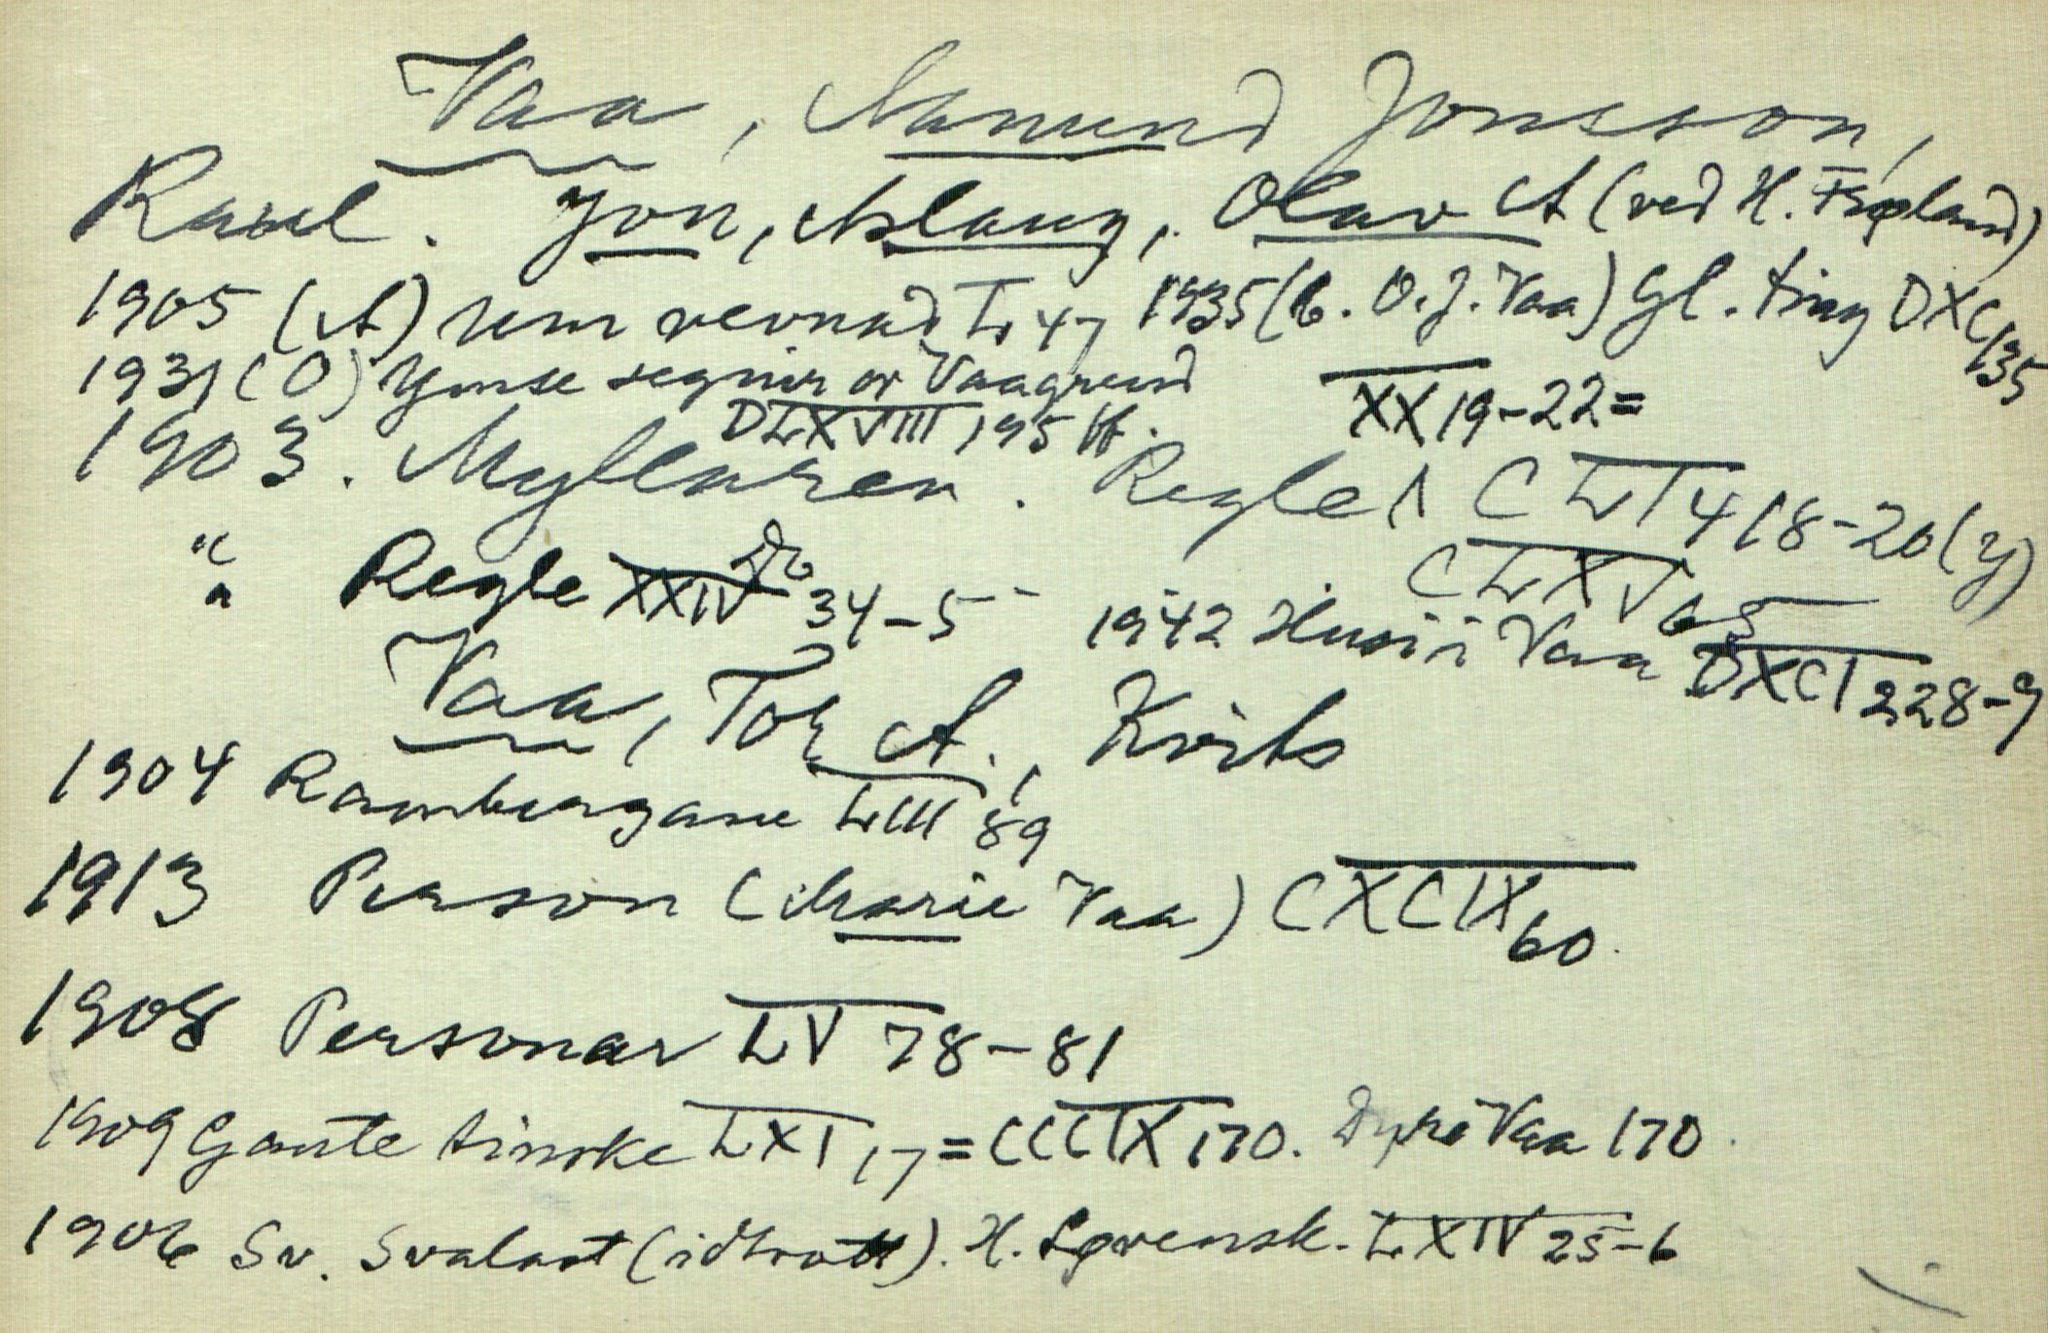 Vaa, Aamund Jonsson,
Raul. Jon, Aslaug, Olav A (ved H. Fröland)
1905 (A) um revnad L 47 1935 (b. O. J. Vaa) Gl. ting DXC 135
1931 (O) Ymse segnir or Vaagrend XX 19-22=
DLXVIII 195 ff.
1903. Myllaren. Regle 1 CLI 418-20 (y)
" Regle XXIV 34-5 CLXV 65
1942 Husi i Vaa DXCI 228-9
Vaa, Tor A., Kvits
1904 Rambergane LIII 89
1913 Person (Marie Vaa) CXCIX 60
1908 Personar LV 78-81
1909 Gaute Sinnke LXI 17=CCCIX 170. Dyre Vaa 170
1906 Sv. Svalast (idtrott). H. Lövensk. LXIV 25-6